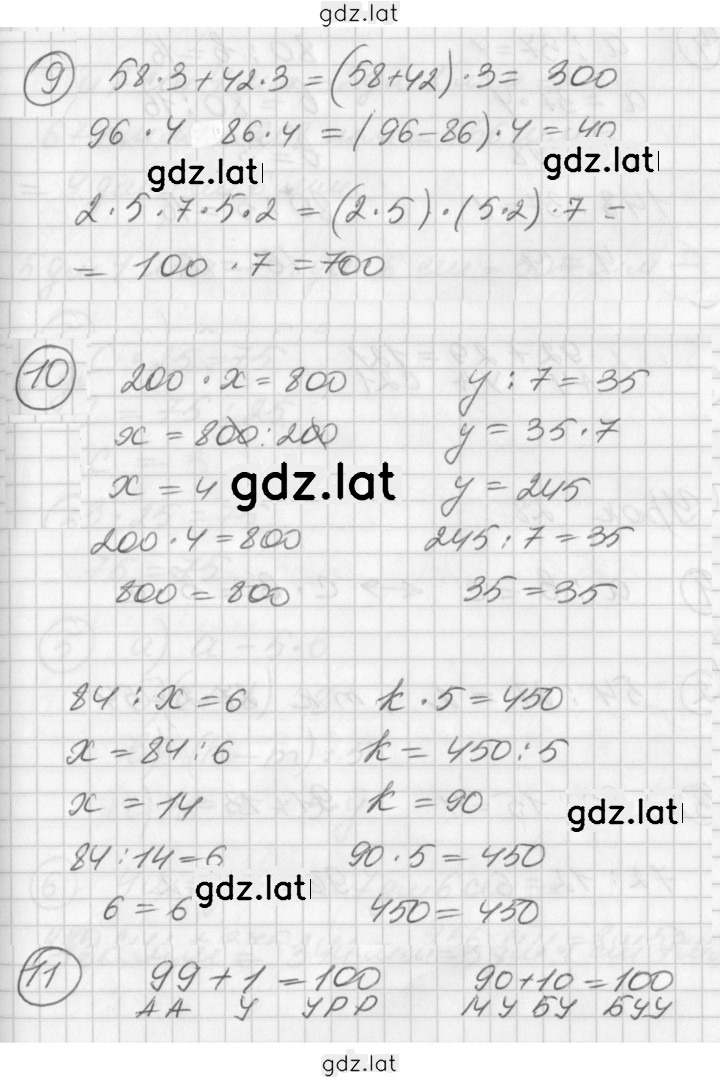 gdz.lat
9 58·3+42·3=(58+42)·3= 300
96·4 86·4 =(96-86)·4=40
gdz.lat gdz.lat
2·5·7·5·2=(2·5)·(5·2)·7=
= 100·7=700
10 200·x=800 y:7=35
x=800:200 y=35·7
x=4 gdz.lat y=245
200·4=800 245:7=35
800=800 35=35
84:x=6 k·5=450
x=84:6 k=450:5
x=14 k=90 gdz.lat
84:14=6 90·5=450
gdz.lat
6=6 450=450
11 99+1=100 90+10=100
АА У УРР МУ БУ БУУ
gdz.lat